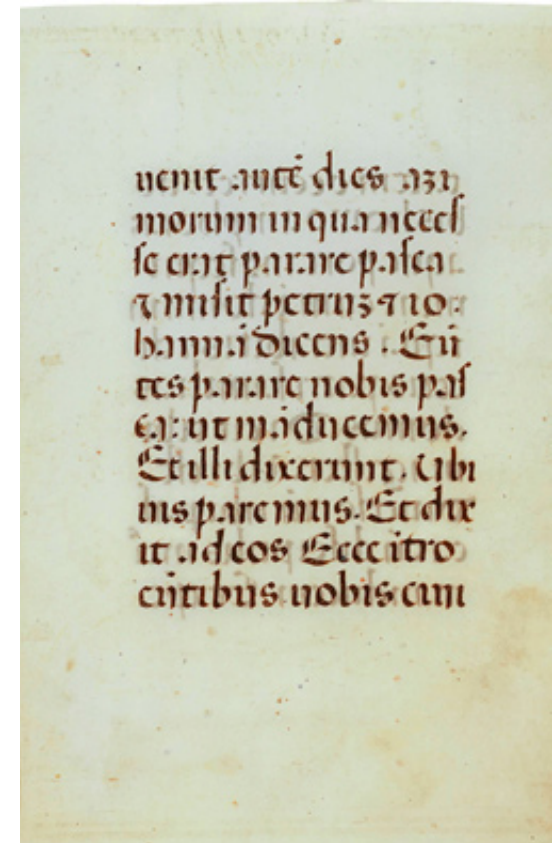 uenit autē dies azi
morum in qua necesſ
ſe erat parare paſca
⁊ miſit petruꝫ ⁊ io
hannā dicens. Eū
tes parare nobis paſ
ca: ut māducemus.
Et illi dixerunt. Ubi
uis paremus. Et dix
it ad eos Ecce ītro
eūtibus uobis ciui